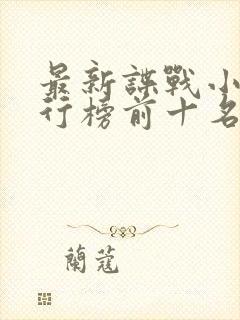 最新諜戰小
行榜前十名
蘭蔻